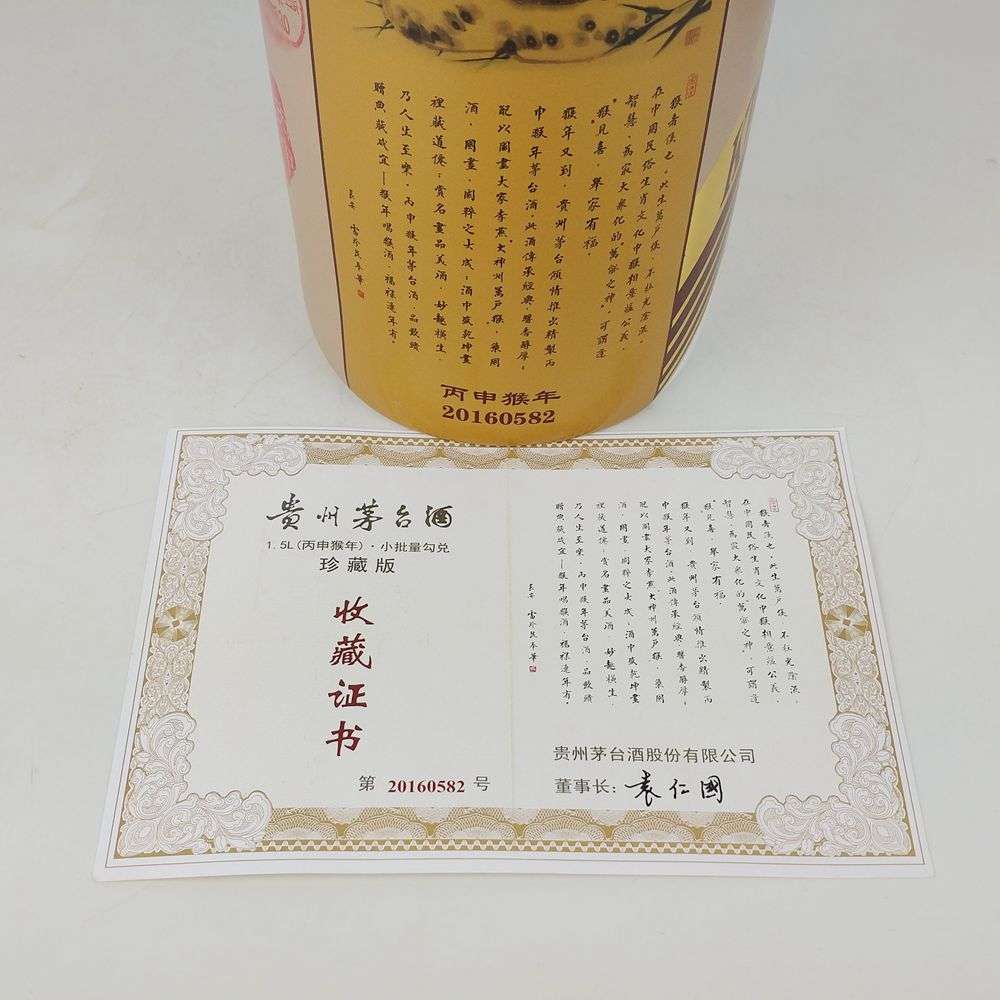 猴者侯也，此生萬戶侯，不枉光陰流。
在中國民俗生肖文化中猴相靈猛公義、
智慧，為最大衆化的“萬審之神”，可謂逢
“猴”見喜，舉家有福。
猴年又到，貴州茅台傾情推出精製丙
申猴年茅台酒。此酒傳承經典，醬香醇厚；
配以國畫大家李燕大神州萬戶猴，樂國
酒、國畫、國粹之大成；酒中盛乾坤畫
裡藏道儒；賞名畫品美酒，妙趣橫生，
乃人生至樂。丙申猴年茅台酒，品飲饋
贈典藏咸宜——猴年喝猴酒，福祿連年有。
丙申猴年
20160582
贵州茅台酒
1.5L(丙申猴年)·小批量勾兑
珍藏版
收藏证书
第 20160582 号
猴者侯也，此生萬戶侯，不枉光陰流。
在中國民俗生肖文化中猴相靈猛公義、
智慧，為最大衆化的“萬審之神”，可謂逢
“猴”見喜，舉家有福。
猴年又到，貴州茅台傾情推出精製丙
申猴年茅台酒。此酒傳承經典，醬香醇厚；
配以國畫大家李燕大神州萬戶猴，樂國
酒、國畫、國粹之大成；酒中盛乾坤畫
裡藏道儒；賞名畫品美酒，妙趣橫生，
乃人生至樂。丙申猴年茅台酒，品飲饋
贈典藏咸宜——猴年喝猴酒，福祿連年有。
贵州茅台酒股份有限公司
董事长：袁仁國